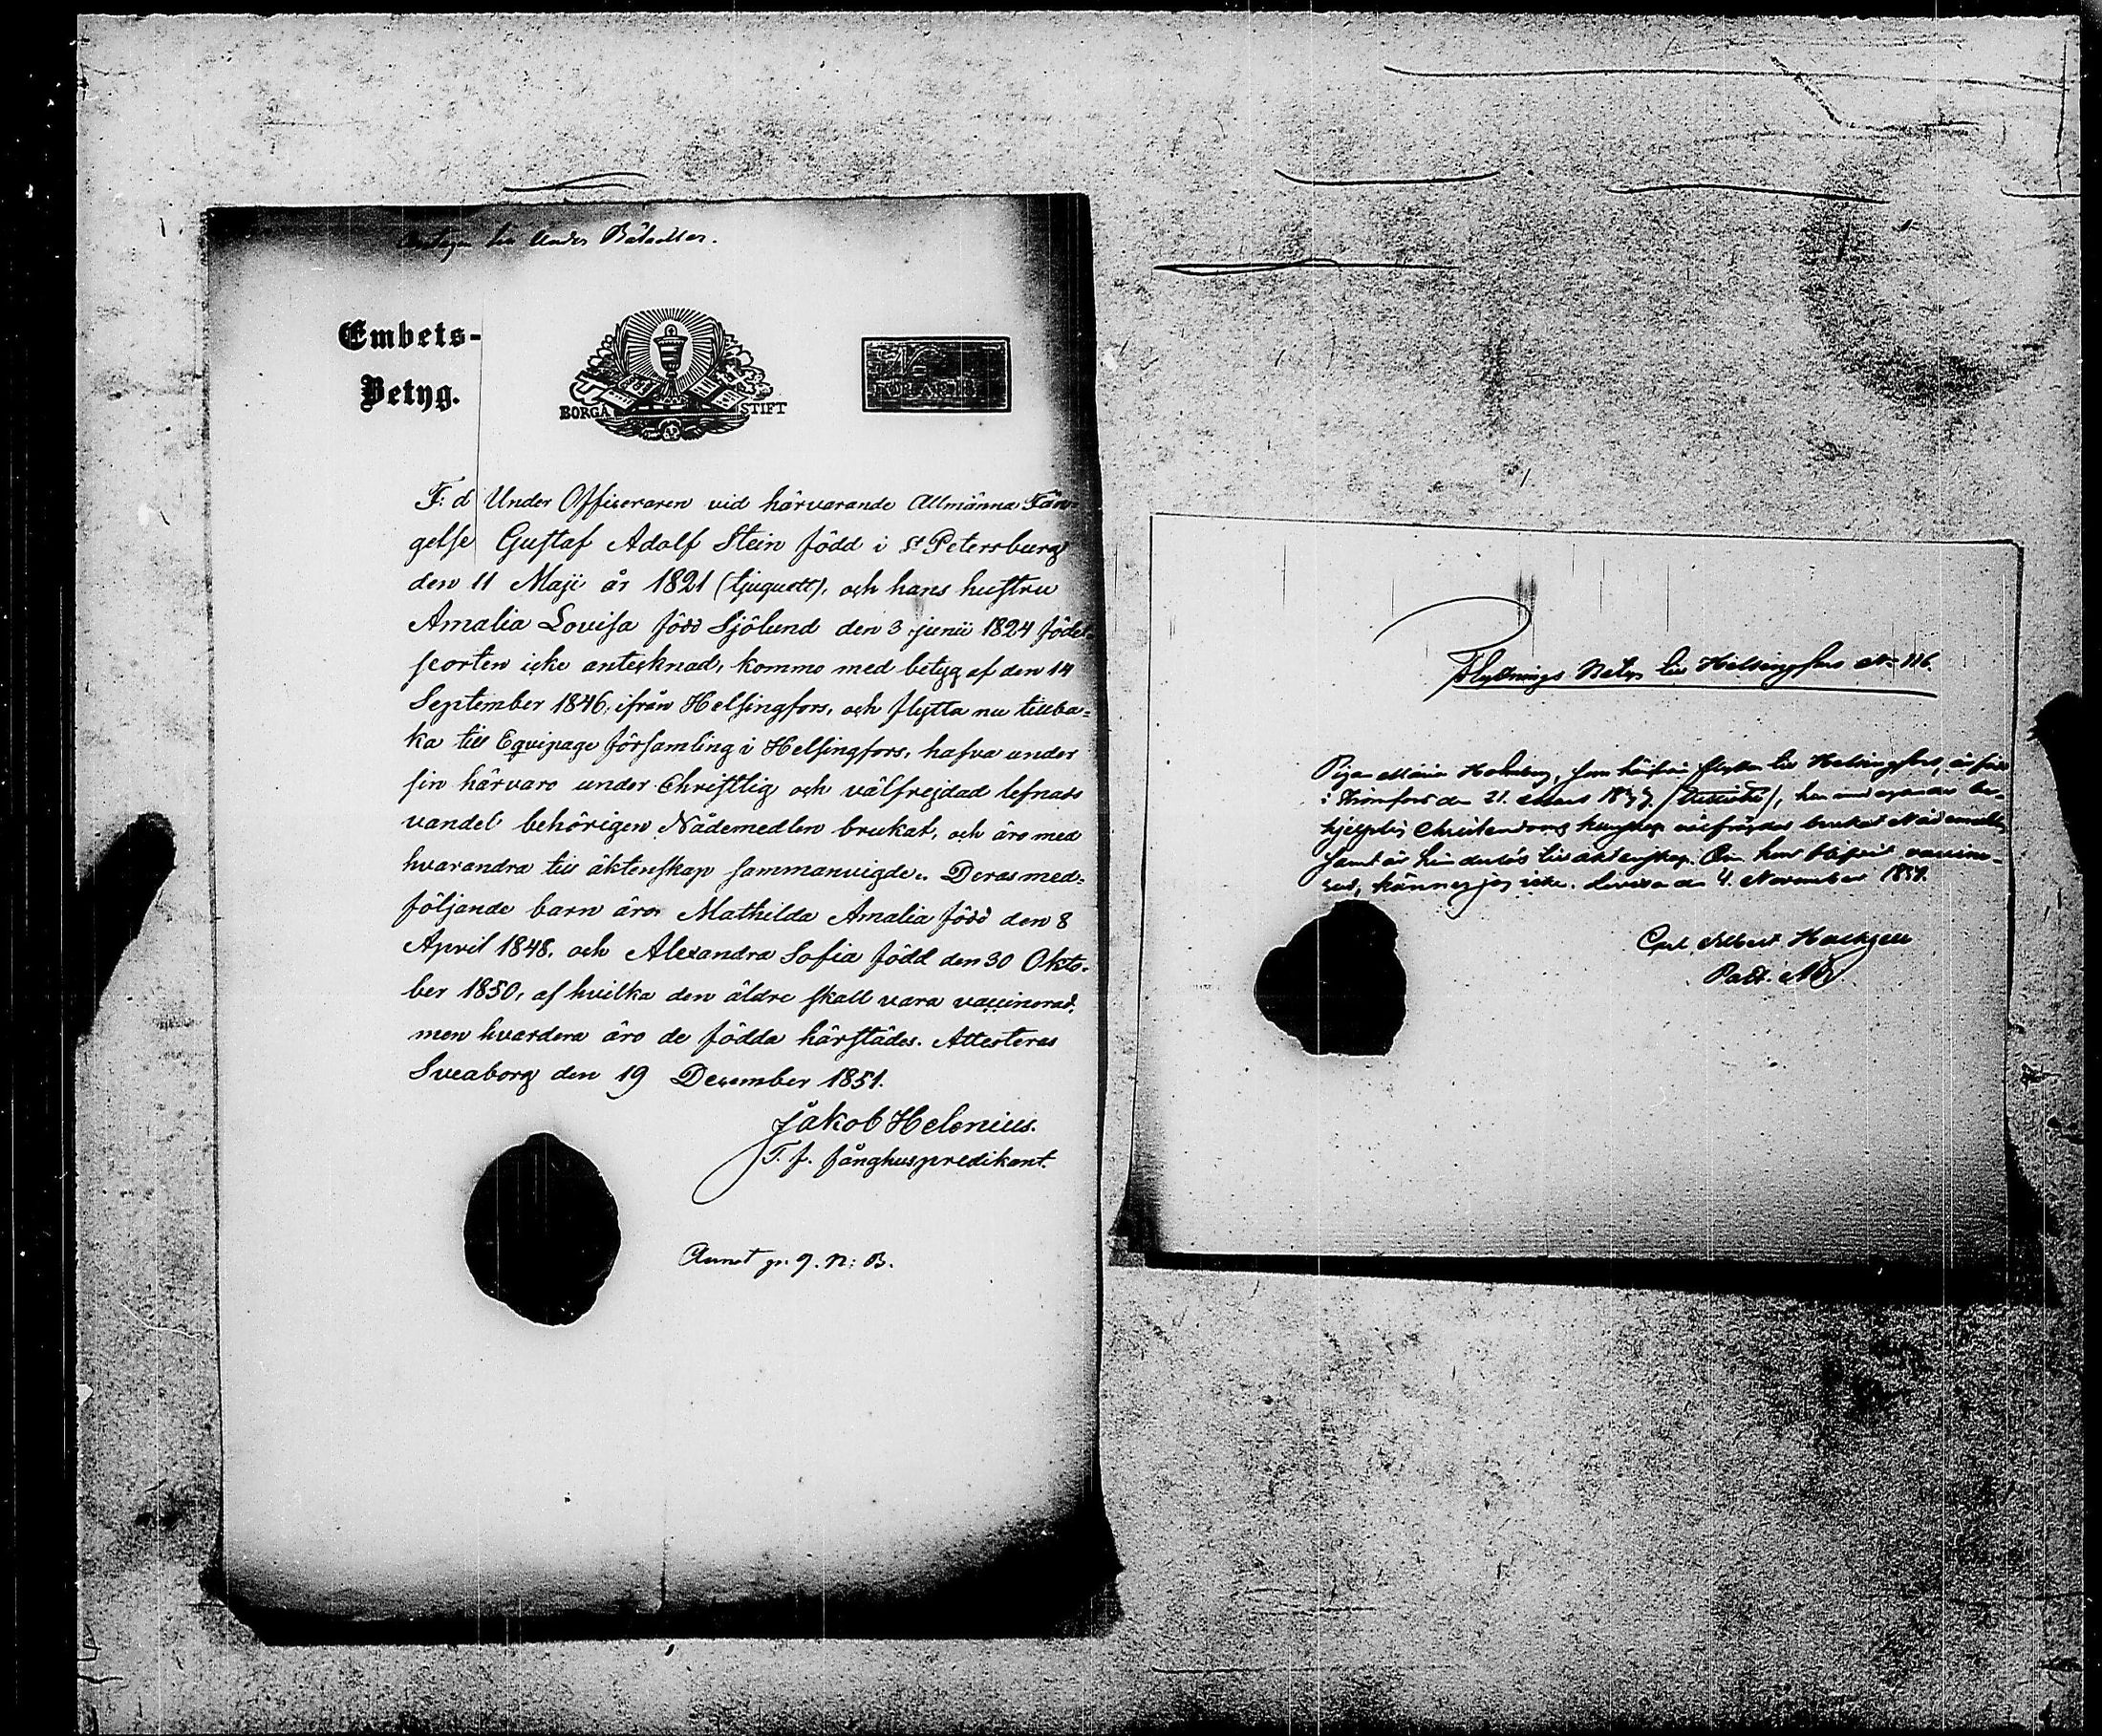 Embets-
Betyg.
BORGÅ STIFT
F: d Under Officeraren vid härvarande Allmänna Fän-
gelse Gustaf Adolf Stein född i St Petersburg
den 11 Maji år 1821 (tjuguett), och hans hustru
Amalia Lovisa född Sjölund den 3 junii 1824 födel-
seorten icke antecknad, kommo med betyg af den 14
September 1846, ifrån Helsingfors, och flytta nu tillba-
ka till Equipage församling i Helsingfors, hafva under
sin härvaro under Christlig och välfrejdad lefnads
vandel behörigen Nådemedlen brukat, och äro med
hvarandra till äktenskap sammanvigde. Deras med-
följande barn äro Mathilda Amalia född den 8
April 1848, och Alexandra Sofia född den 30 Okto-
ber 1850, af hvilka den äldre skall vara vaccinerad,
men hvardera äro de födda härstädes. Attesteras
Sveaborg den 19 December 1851.
Jakob Helenius.
T. f. fånghuspredikant.
Flyttnings Betyg till Helsingfors No 116.
Pigan Maria Holmberg, som härifrån flyttar till Helsingfors, är född
i Strömfors den 21. Mars, har
Christendoms kunskap välfrejdad brukat Nådemedlen
samt är hinderlös till äktenskap. Om hon blifvit vaccine-
rad, känner jag icke. Lovisa den 4. November 1851.
Carl Albert
Past.